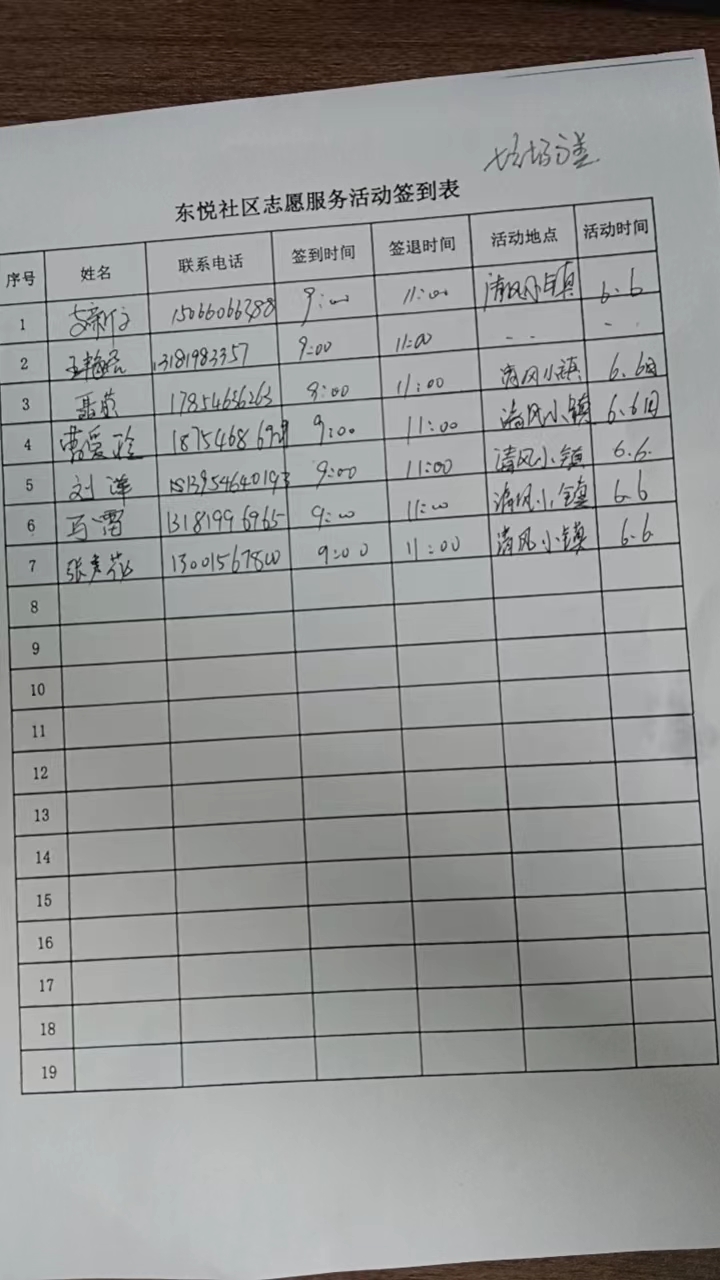 垃圾分类
东悦社区志愿服务活动签到表
序号 姓名 联系电话 签到时间 签退时间 活动地点 活动时间
1 15066066288 9:00 11:00 清风小镇 6.6
2 13181983357 9:00 11:00 - - - -
3 17854656263 9:00 11:00 清风小镇 6.6日
4 曹爱玲 9:00 11:00 清风小镇 6.6日
5 刘 9:00 11:00 清风小镇 6.6.
6 马雷 13181996965 9:00 11:00 清风小镇 6.6
7 13001567800 9:00 11:00 清风小镇 6.6
8
9
10
11
12
13
14
15
16
17
18
19